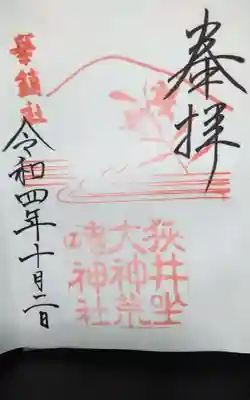 奉拝
狹井坐
大神荒
魂神社
華鎮社
令和四年十月二日